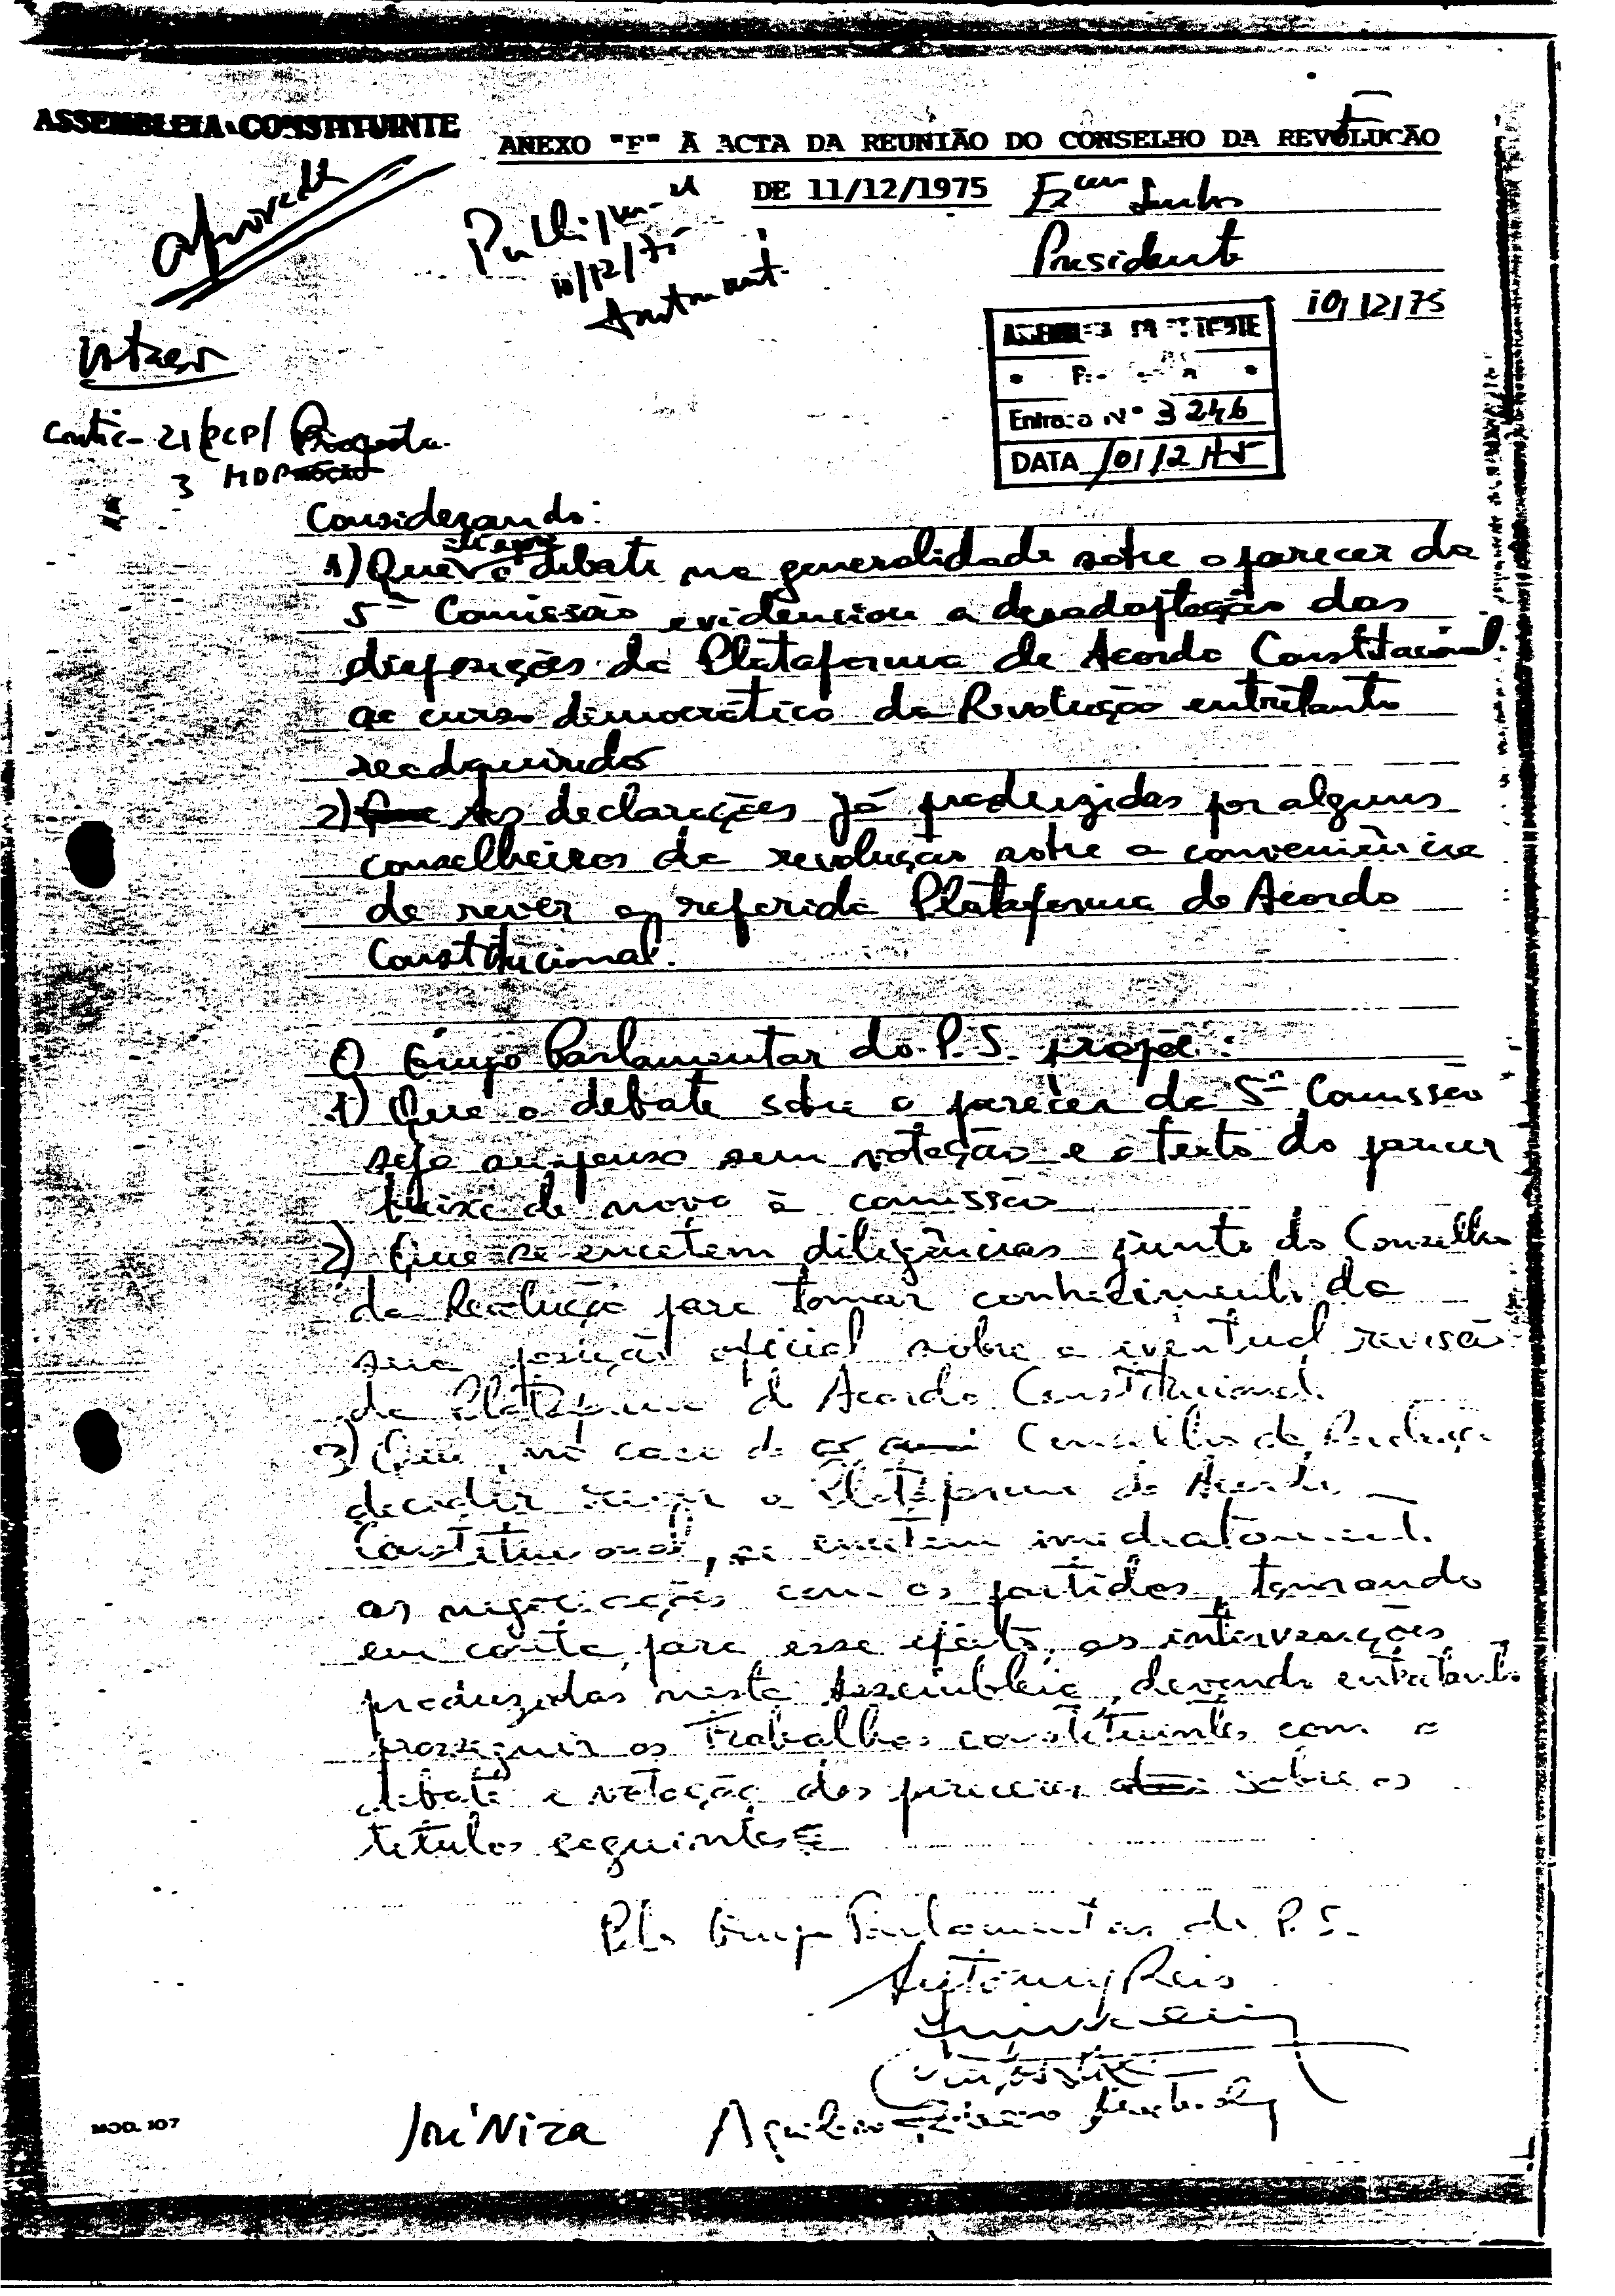 ASSEMBLEIA CONSTITUINTE
ANEXO "F" À ACTA DA REUNIÃO DO CONSELHO DA REVOLUÇÃO
DE 11/12/1975
Presidente
10/12/75
10/12/75
Entrada Nº 3246
DATA 10/12/75
Contra - 21 PCP/ Proposta
3 MDP
Considerando:
1) Que o debate na generalidade sobre o parecer da
5ª Comissão evidenciou a desadaptação das
disposições da Plataforma de Acordo Constitucional
ao curso democrático da Revolução entretanto
readquirido
2) As declarações já produzidas por alguns
conselheiros da revolução sobre a conveniência
de rever a referida Plataforma de Acordo
Constitucional.
O Grupo Parlamentar do P.S. propõe:
1) Que o debate sobre o parecer da 5ª Comissão
seja suspenso sem votação e o texto do parecer
baixe de novo à comissão
2) Que se encetem diligências junto do Conselho
da Revolução para tomar conhecimento da
sua posição oficial sobre a eventual revisão
da Plataforma de Acordo Constitucional.
3) Que, no caso de o Conselho da Revolução
decidir rever a Plataforma de Acordo
Constitucional, se encetem imediatamente
as negociações com os partidos, tomando
em conta, para esse efeito, as intervenções
produzidas nesta Assembleia, devendo entretanto
prosseguir os trabalhos constituintes com o
debate e votação dos pareceres sobre os
títulos seguintes
Pelo Grupo Parlamentar do P.S.
António Reis
José Niza
Aquilino Ribeiro Machado
MOD. 107